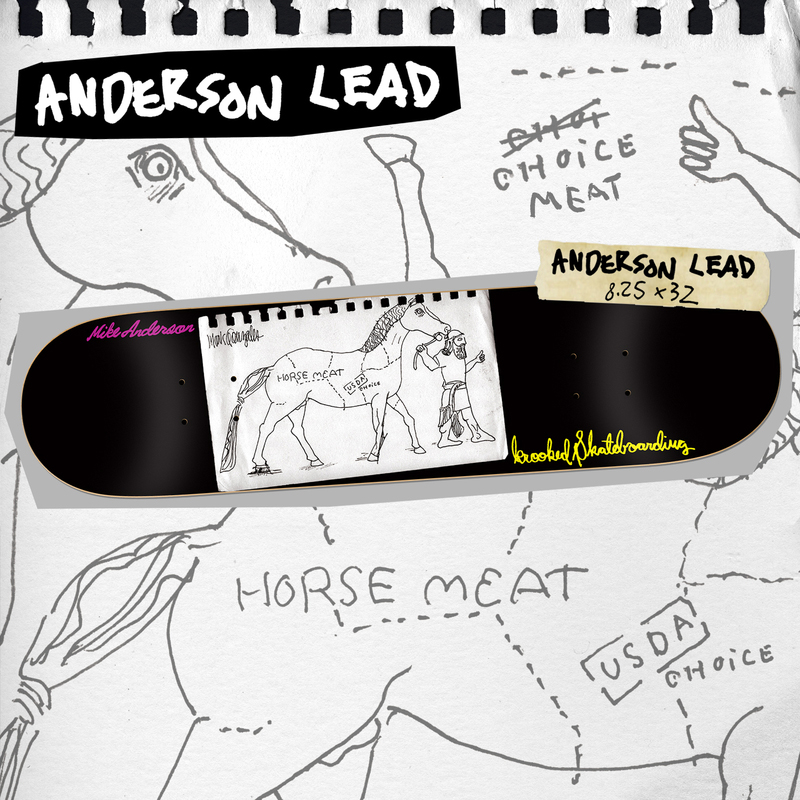 ANDERSON LEAD
CHOICE
MEAT
ANDERSON LEAD
8.25 x 32
Mike Anderson
Mark Gonzales
HORSE MEAT
USDA
CHOICE
Krooked Skateboarding
HORSE MEAT
USDA
CHOICE